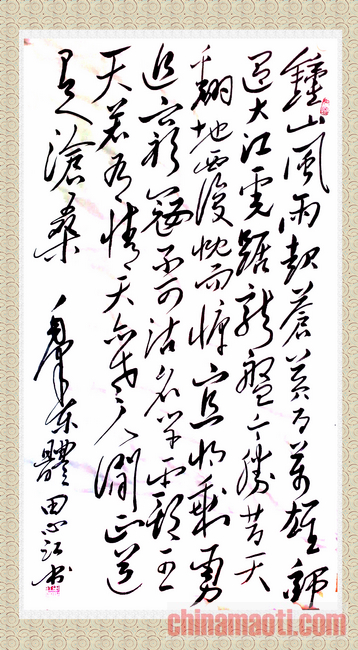 鐘山風雨起蒼黃百萬雄師
過大江虎踞龍盤今勝昔天
翻地覆慨而慷宜將剩勇
追窮寇不可沽名學霸王
天若有情天亦老人間正道
是滄桑
毛澤東體田江书
chinamaoti.com